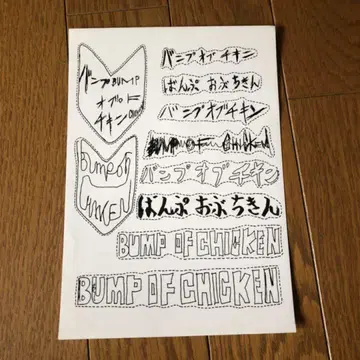 バンプBUMP
オブOF
チキン
BUMP OF
CHICKEN
バンプオブチキン
ばんぷ おぶ ちきん
バンプオブチキン
BUMP OF CHICKEN
バンプオブチキン
ばんぷ おぶ ちきん
BUMP OF CHICKEN
BUMP OF CHICKEN